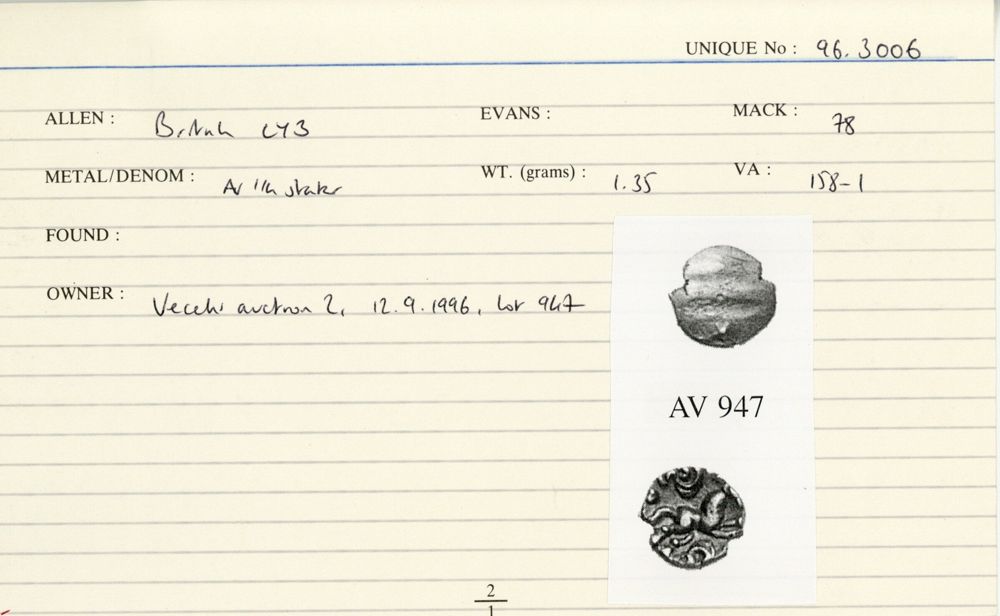 UNIQUE No : 96.3006
ALLEN : British LY3 EVANS : MACK : 78
METAL/DENOM : AV 1/4 stater WT. (grams) : 1.35 VA : 158-1
FOUND :
OWNER : Vecchi auction 2, 12.9.1996, Lot 947
AV 947
2
1